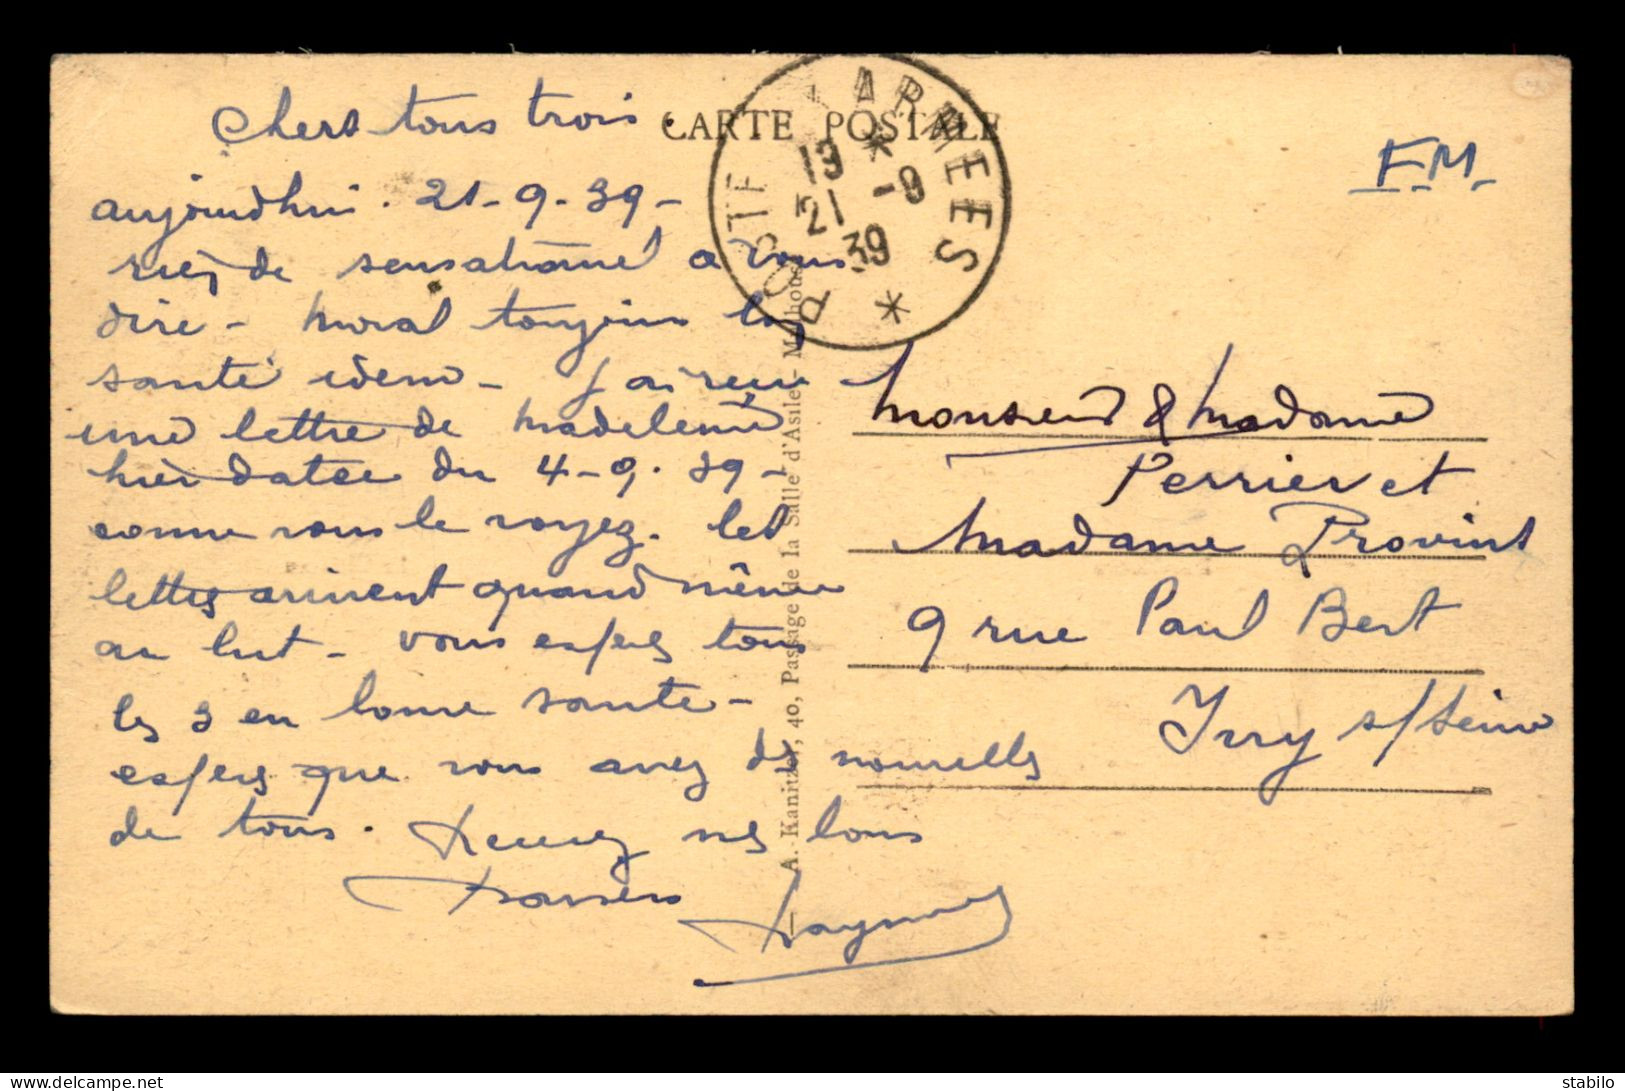 CARTE POSTALE
POSTE AUX ARMEES
19 * 21 -9 39 *
F.M.
Chers tous trois.
aujourdhui. 21-9-39-
rien de sensationnel a vous
dire - moral toujours bon
santé idem - J ai recu
une lettre de Madeleine
hier datée du 4-9.39-
comme vous le voyez. les
lettres arrivent quand même
au but - vous espere tous
les 3 en bonne santé -
espere que vous avez des nouvelles
de tous. Recevez mes bons
baisers Raymond
A. Kanitzer, 40, Passage de la Salle d'Asile - Mulhouse
Monsieur & Madame
Perrier et
Madame Provins
9 rue Paul Bert
Ivry s/Seine
stabilo